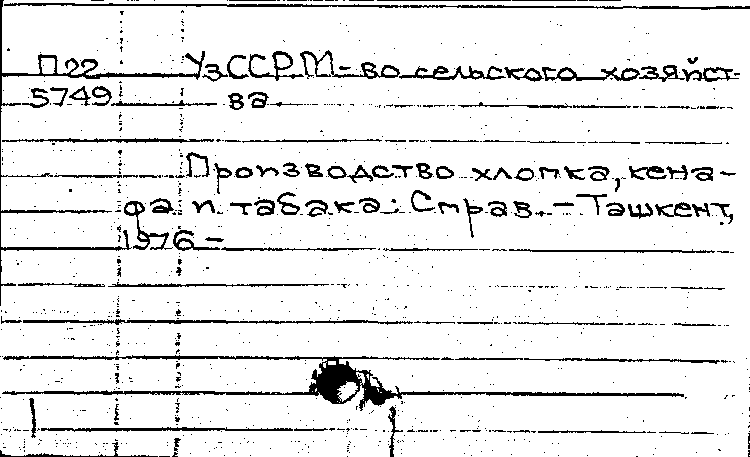 П22 УзССР.М-во сельского хозяйст-
5749 ва.
Производство хлопка, кена-
фа и табака: Справ. – Ташкент,
1976 –